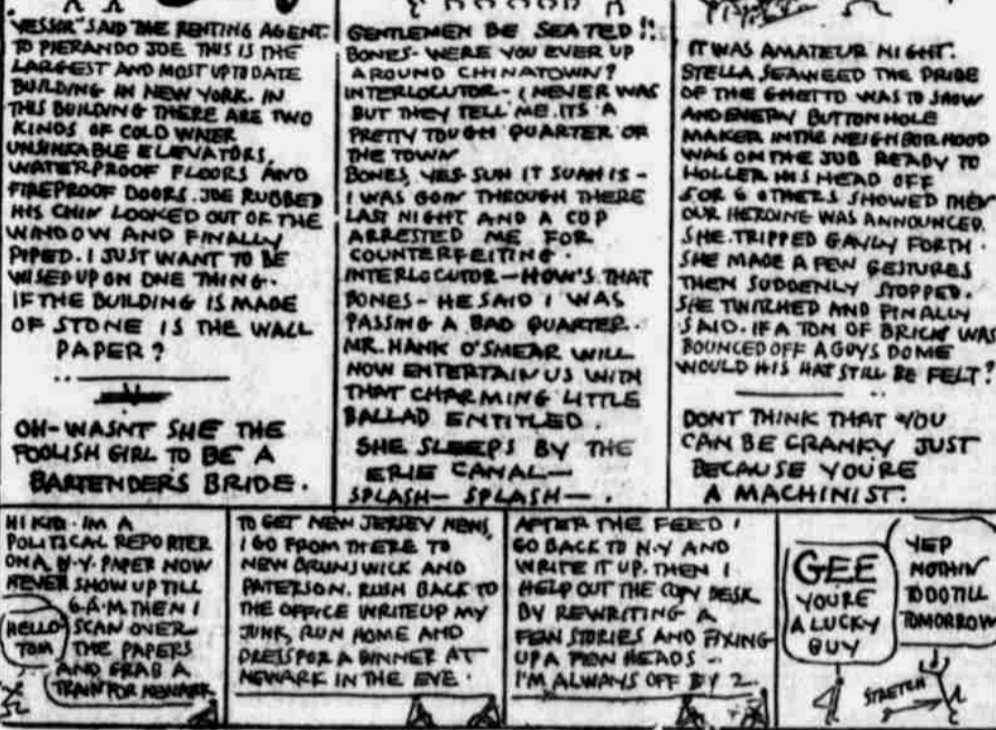 "YESSIR" SAID THE RENTING AGENT.
TO PIERANDO JOE THIS IS THE
LARGEST AND MOST UP TO DATE
BUILDING IN NEW YORK. IN
THIS BUILDING THERE ARE TWO
KINDS OF COLD WATER
UNSINKABLE ELEVATORS,
WATERPROOF FLOORS AND
FIREPROOF DOORS. JOE RUBBED
HIS CHIN LOOKED OUT OF THE
WINDOW AND FINALLY
PIPED. I JUST WANT TO BE
WISED UP ON ONE THING.
IF THE BUILDING IS MADE
OF STONE IS THE WALL
PAPER?
OH-WASNT SHE THE
FOOLISH GIRL TO BE A
BARTENDERS BRIDE.
GENTLEMEN BE SEATED!!
BONES- WERE YOU EVER UP
AROUND CHINATOWN?
INTERLOCUTOR- I NEVER WAS
BUT THEY TELL ME. ITS A
PRETTY TOUGH QUARTER OF
THE TOWN
BONES, YES SUH IT SUAH IS-
I WAS GOIN THROUGH THERE
LAST NIGHT AND A COP
ARRESTED ME FOR
COUNTERFEITING.
INTERLOCUTOR-HOW'S THAT
BONES- HE SAID I WAS
PASSING A BAD QUARTER.
MR. HANK O'SMEAR WILL
NOW ENTERTAIN US WITH
THAT CHARMING LITTLE
BALLAD ENTITLED.
SHE SLEEPS BY THE
ERIE CANAL-
SPLASH- SPLASH-.
IT WAS AMATEUR NIGHT.
STELLA SEAWEED THE PRIDE
OF THE GHETTO WAS TO SHOW
AND EVERY BUTTON HOLE
MAKER IN THE NEIGHBORHOOD
WAS ON THE JOB READY TO
HOLLER HIS HEAD OFF
5 OR 6 OTHERS SHOWED THEN
OUR HEROINE WAS ANNOUNCED.
SHE TRIPPED GAYLY FORTH.
SHE MADE A FEW GESTURES
THEN SUDDENLY STOPPED.
SHE TWITCHED AND FINALLY
SAID. IF A TON OF BRICK WAS
BOUNCED OFF A GUYS DOME
WOULD HIS HAT STILL BE FELT?
DONT THINK THAT YOU
CAN BE CRANKY JUST
BECAUSE YOU'RE
A MACHINIST.
HI KID. IM A
POLITICAL REPORTER
ON A N.Y. PAPER NOW
NEVER SHOW UP TILL
6-A-M. THEN I
SCAN OVER
THE PAPERS
AND GRAB A
TRAIN FOR NEWARK
HELLO
TOM
TO GET NEW JERSEY NEWS.
I GO FROM THERE TO
NEW BRUNSWICK AND
PATERSON. RUSH BACK TO
THE OFFICE WRITE UP MY
JUNK, RUN HOME AND
DRESS FOR A DINNER AT
NEWARK IN THE EVE.
AFTER THE FEED I
GO BACK TO N.Y AND
WRITE IT UP. THEN I
HELP OUT THE COPY DESK
BY REWRITING A
FEW STORIES AND FIXING
UP A FEW HEADS-
I'M ALWAYS OFF BY 2.
GEE
YOU'RE
A LUCKY
GUY
YEP
NOTHIN'
TO DO TILL
TOMORROW
STRETCH